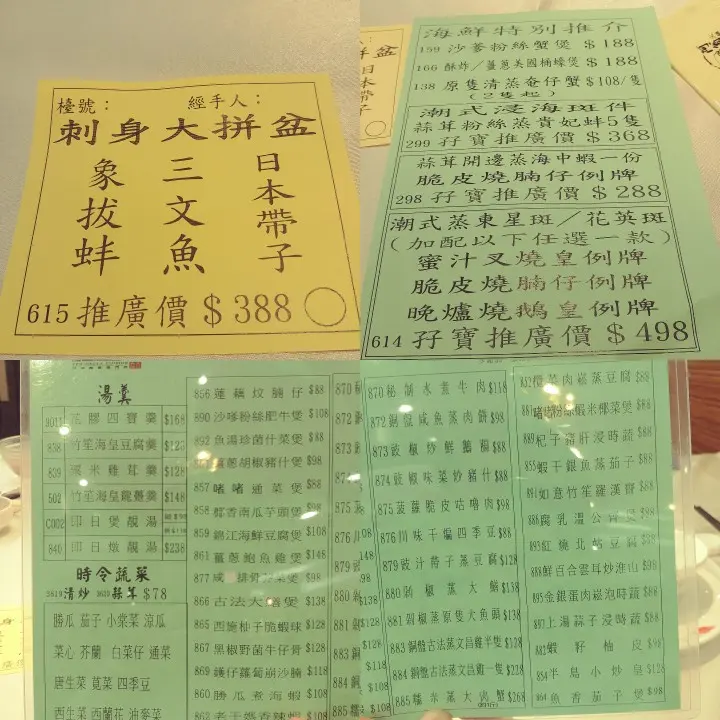 檯號： 經手人：
刺身大拼盆
象拔蚌 三文魚 日本帶子
615 推廣價 $388
海鮮特別推介
159 沙爹粉絲蟹煲 $188
166 酥炸／薑蔥美國桶蠔煲 $188
138 原隻清蒸奄仔蟹 $108/隻
(2隻起)
潮式浸海斑件
蒜茸粉絲蒸貴妃蚌5隻
299 孖寶推廣價 $368
蒜茸開邊蒸海中蝦一份
脆皮燒腩仔例牌
298 孖寶推廣價 $288
潮式蒸東星斑／花英斑
(加配以下任選一款)
蜜汁叉燒皇例牌
脆皮燒腩仔例牌
晚爐燒鵝皇例牌
614 孖寶推廣價 $498
湯羹
四寶羹 $168
838 竹笙海皇豆腐羹
839 粟米雞茸羹 $128
502 竹笙海皇龍躉羹 $148
C002 即日煲靚湯
840 即日燉靚湯 $238
時令蔬菜
清炒 蒜茸 $78
勝瓜 茄子 小棠菜 涼瓜
菜心 芥蘭 白菜仔 通菜
唐生菜 莧菜 四季豆
西生菜 西蘭花 油麥菜
856 蓮藕炆腩仔 $88
890 沙嗲粉絲肥牛煲 $108
892 魚湯珍菌什菜煲 $88
蔥胡椒豬什煲 $98
857 啫啫通菜煲 $88
858 香南瓜芋頭煲 $98
859 錦江海鮮豆腐煲 $108
861 薑蔥鮑魚雞煲 $148
877 排骨 煲 $98
866 古法大 煲 $138
865 西施柚子脆蝦球 $128
867 黑椒野菌牛仔骨 $128
869 鑊仔蘿蔔崩沙腩 $118
860 勝瓜煮海蝦 $108
862
870 秘制水煮牛肉 $118
872 銅盤咸魚蒸肉餅 $98
873 豉椒炒鮮鵝腸 $88
874 豉椒味菜炒豬什 $88
875 菠蘿脆皮咕嚕肉 $98
876 川味干煸四季豆 $88
879 豉汁帶子蒸豆腐 $128
880 剁椒蒸大 $138
881 剁椒蒸原隻大魚頭 $138
883 銅盤古法蒸文昌雞半隻 $128
884 銅盤古法蒸文昌雞一隻 $228
885 糯米蒸大肉蟹 $268
菜肉崧蒸豆腐 $88
粉絲蝦米椰菜煲 $88
889 杞子豬肝浸時蔬 $88
855 蝦干銀魚蒸茄子 $88
891 如意竹笙羅漢齋 $88
886 腐乳溫公齋煲
893 紅燒北菇豆腐 $88
888 鮮百合雲耳炒淮山 $98
895 金銀蛋肉崧泡時蔬 $88
897 上湯蒜子浸時蔬 $88
882 蝦籽柚皮 $98
854 半島小炒皇 $128
864 魚香茄子煲 $98